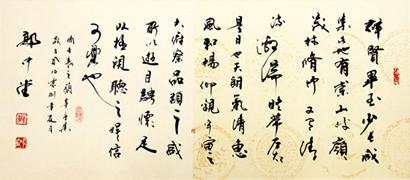 群賢畢至少長咸
集此地有崇山峻嶺
茂林修竹又有清
流激湍映帶左右
是日也天朗氣清惠
風和暢仰觀宇宙之
大俯察品類之盛
所以遊目騁懷足
以極視聽之娛信
可樂也